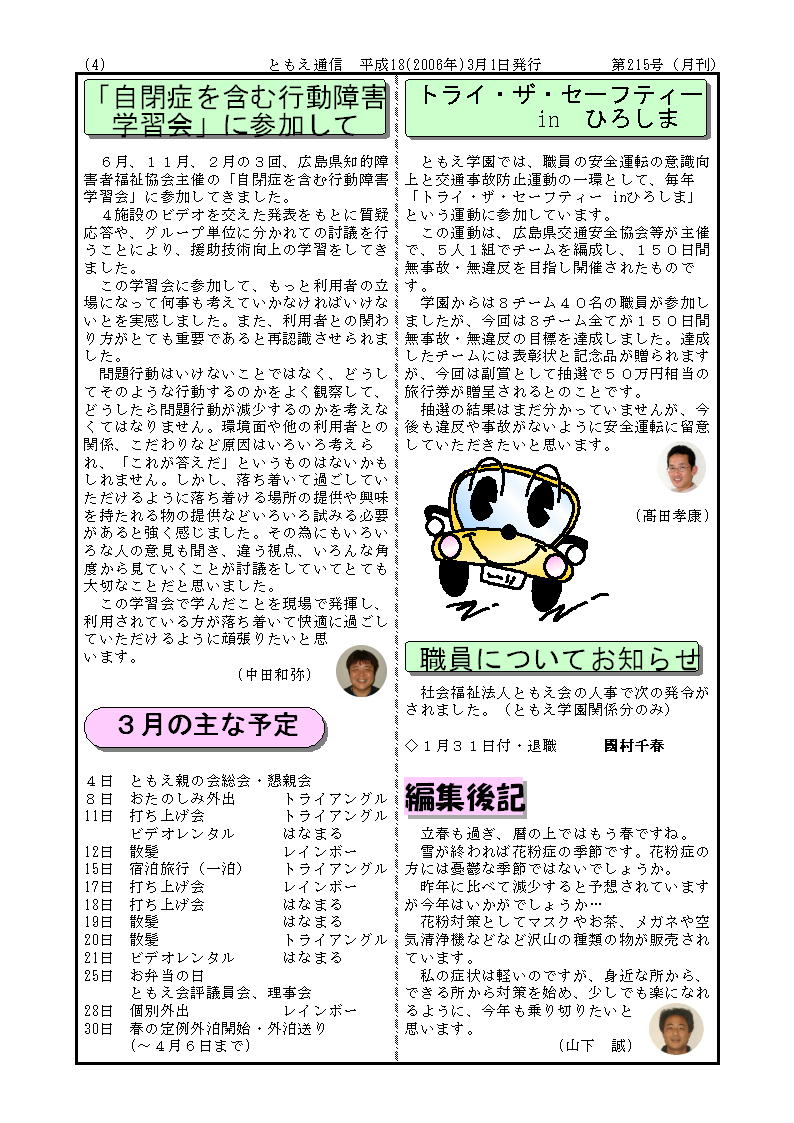 (4)　ともえ通信　平成18(2006年)3月1日発行　第215号（月刊）
「自閉症を含む行動障害
学習会」に参加して
６月、１１月、２月の３回、広島県知的障
害者福祉協会主催の「自閉症を含む行動障害
学習会」に参加してきました。
４施設のビデオを交えた発表をもとに質疑
応答や、グループ単位に分かれての討議を行
うことにより、援助技術向上の学習をしてき
ました。
この学習会に参加して、もっと利用者の立
場になって何事も考えていかなければいけな
いとを実感しました。また、利用者との関わ
り方がとても重要であると再認識させられま
した。
問題行動はいけないことではなく、どうし
てそのような行動するのかをよく観察して、
どうしたら問題行動が減少するのかを考えな
くてはなりません。環境面や他の利用者との
関係、こだわりなど原因はいろいろ考えら
れ、「これが答えだ」というものはないかも
しれません。しかし、落ち着いて過ごしてい
ただけるように落ち着ける場所の提供や興味
を持たれる物の提供などいろいろ試みる必要
があると強く感じました。その為にもいろい
ろな人の意見も聞き、違う視点、いろんな角
度から見ていくことが討議をしていてとても
大切なことだと思いました。
この学習会で学んだことを現場で発揮し、
利用されている方が落ち着いて快適に過ごし
ていただけるように頑張りたいと思
います。
（中田和弥）
３月の主な予定
４日　ともえ親の会総会・懇親会
８日　おたのしみ外出　トライアングル
11日　打ち上げ会　トライアングル
ビデオレンタル　はなまる
12日　散髪　レインボー
15日　宿泊旅行（一泊）　トライアングル
17日　打ち上げ会　レインボー
18日　打ち上げ会　はなまる
19日　散髪　はなまる
20日　散髪　トライアングル
21日　ビデオレンタル　はなまる
25日　お弁当の日
ともえ会評議員会、理事会
28日　個別外出　レインボー
30日　春の定例外泊開始・外泊送り
（～４月６日まで）
トライ・ザ・セーフティー
in　ひろしま
ともえ学園では、職員の安全運転の意識向
上と交通事故防止運動の一環として、毎年
「トライ・ザ・セーフティー inひろしま」
という運動に参加しています。
この運動は、広島県交通安全協会等が主催
で、５人１組でチームを編成し、１５０日間
無事故・無違反を目指し開催されたもので
す。
学園からは８チーム４０名の職員が参加し
ましたが、今回は８チーム全てが１５０日間
無事故・無違反の目標を達成しました。達成
したチームには表彰状と記念品が贈られます
が、今回は副賞として抽選で５０万円相当の
旅行券が贈呈されるとのことです。
抽選の結果はまだ分かっていませんが、今
後も違反や事故がないように安全運転に留意
していただきたいと思います。
（髙田孝康）
職員についてお知らせ
社会福祉法人ともえ会の人事で次の発令が
されました。（ともえ学園関係分のみ）
◇１月３１日付・退職　國村千春
編集後記
立春も過ぎ、暦の上ではもう春ですね。
雪が終われば花粉症の季節です。花粉症の
方には憂鬱な季節ではないでしょうか。
昨年に比べて減少すると予想されています
が今年はいかがでしょうか…
花粉対策としてマスクやお茶、メガネや空
気清浄機などなど沢山の種類の物が販売され
ています。
私の症状は軽いのですが、身近な所から、
できる所から対策を始め、少しでも楽になれ
るように、今年も乗り切りたいと
思います。
（山下　誠）